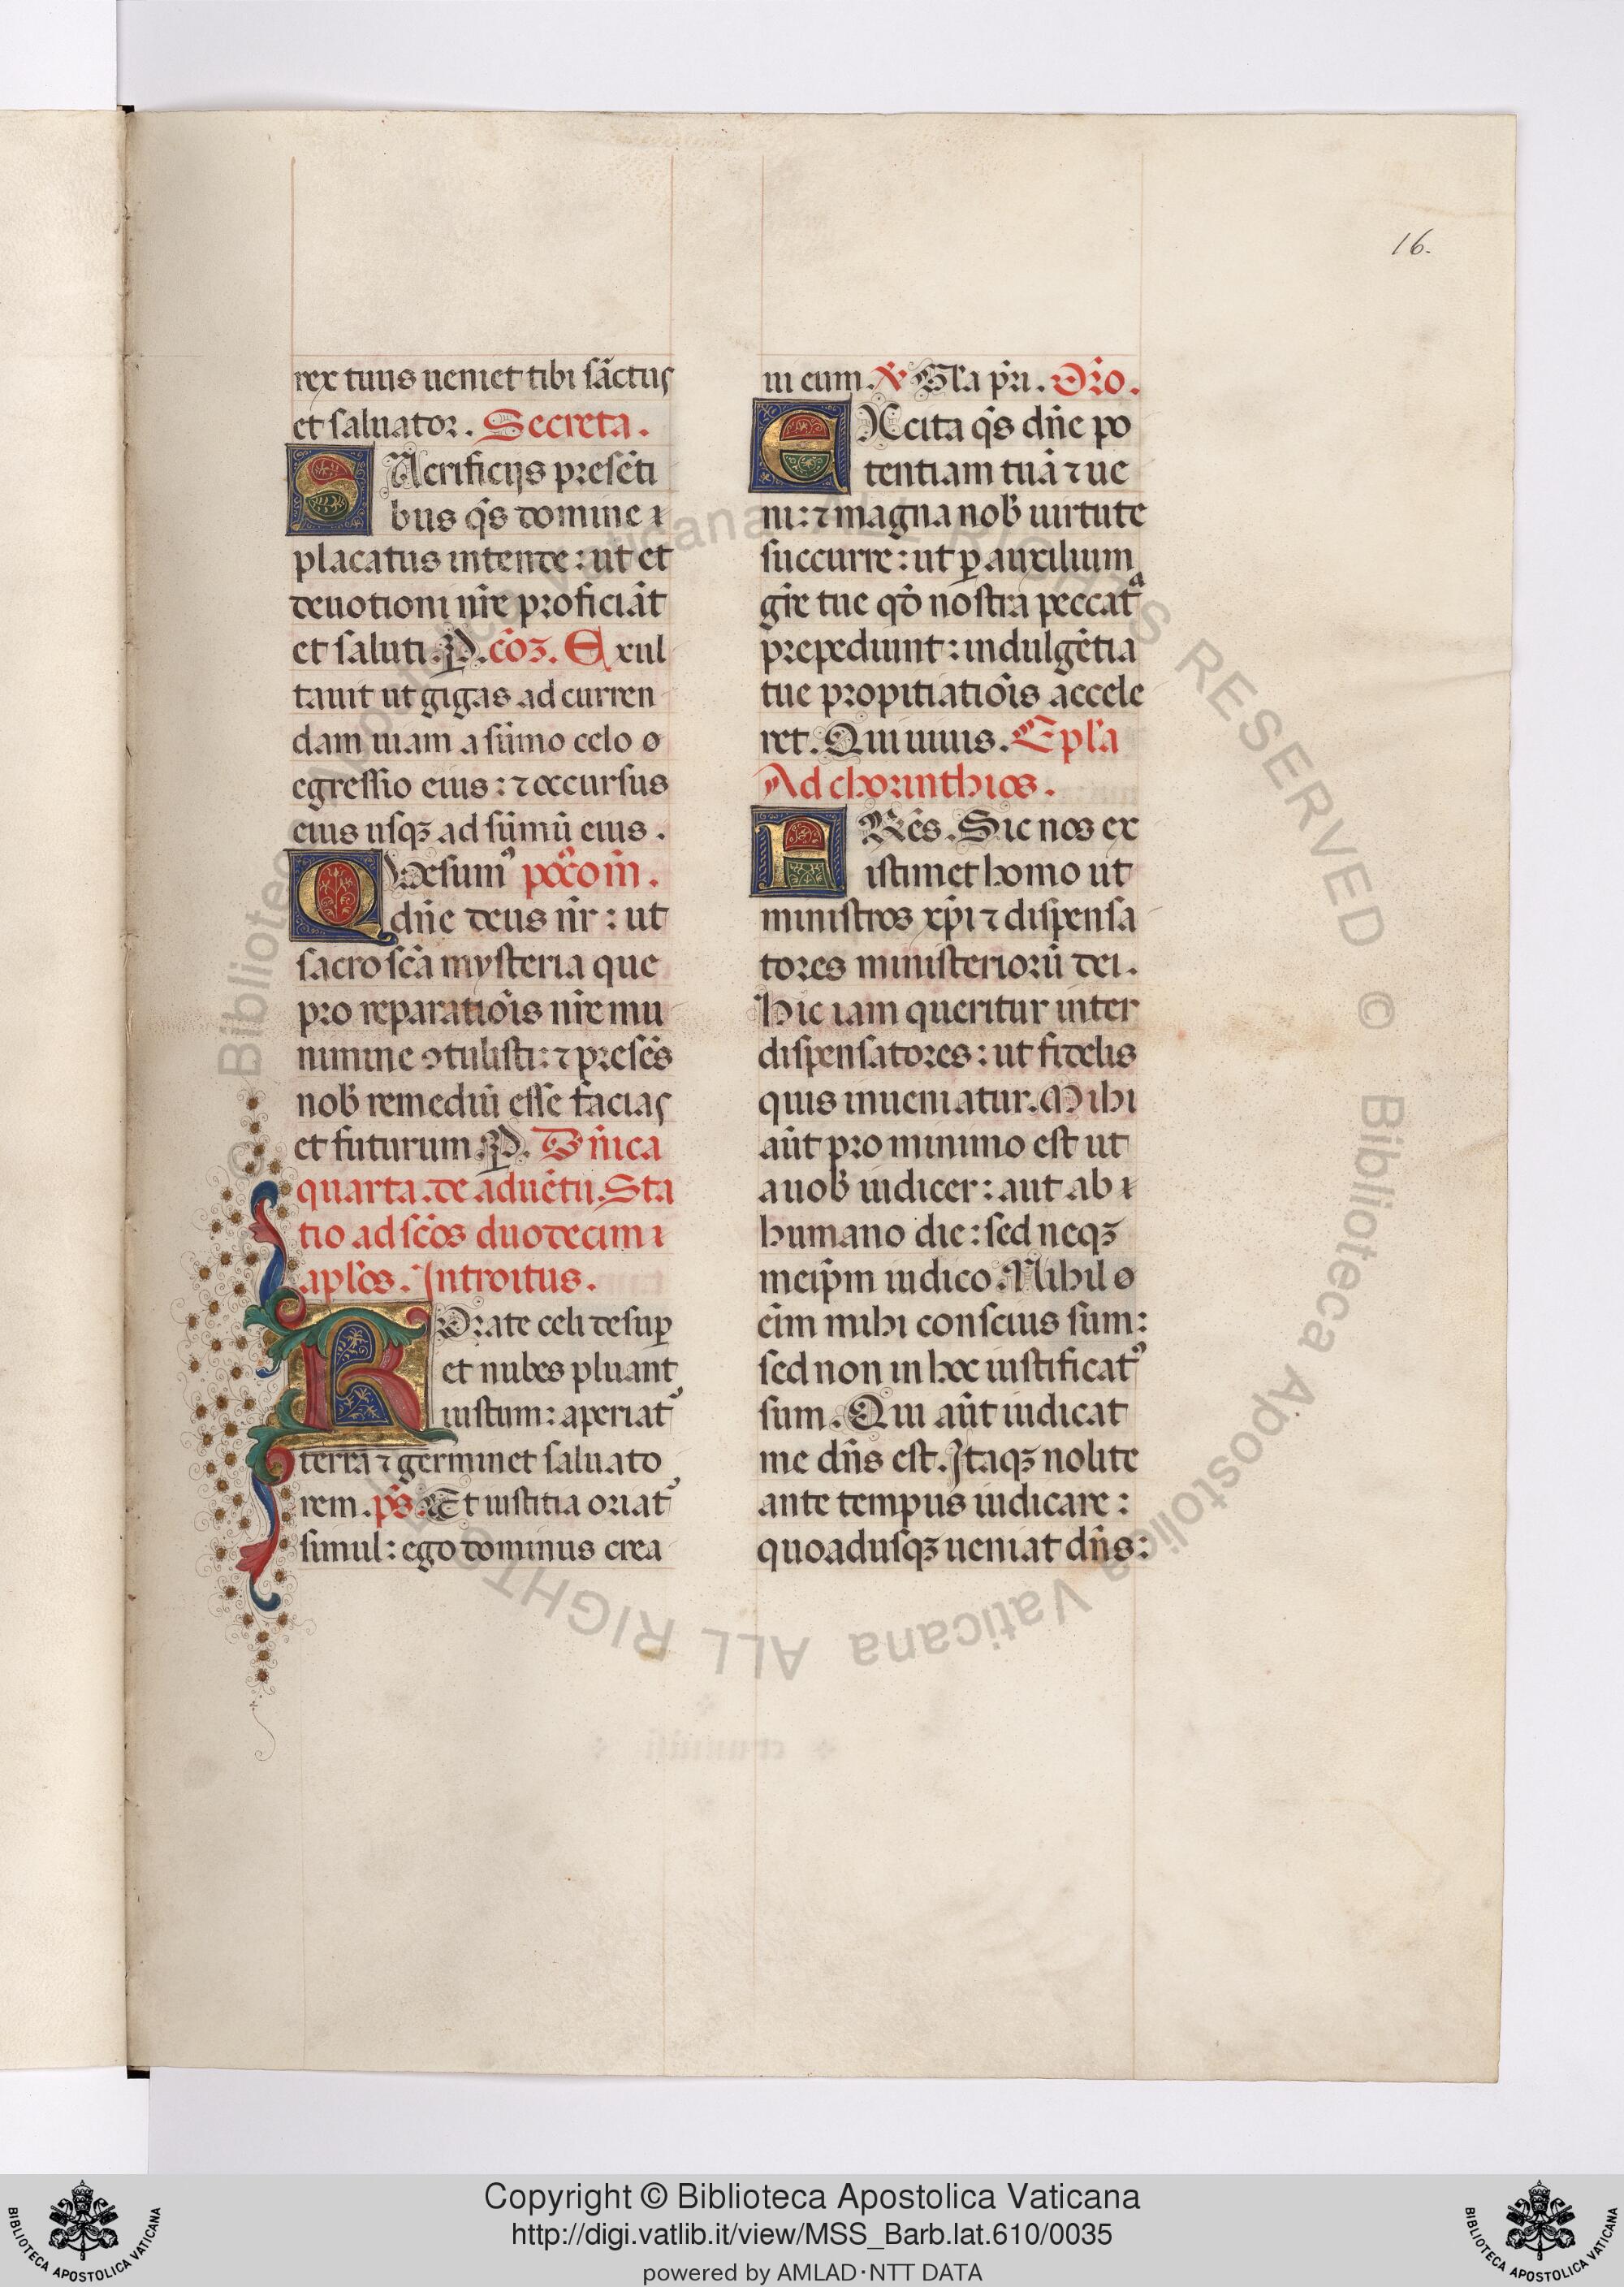 16.
rex tuus ueniet tibi sāctus
et saluator. Secreta.
SAcrificijs presēti
bus q̄s domine ı
placatus intende: ut et
deuotioni nr̄e proficiāt
et saluti. P. cōꝫ. Exul
tauit ut gigas ad curren
dam uiam a sūmo celo o
egressio eius: ⁊ occursus
eius usqꝫ ad sūmū eius.
QVesumꝰ pꝰcom̄.
dn̄e deus nr̄: ut
sacrosc̄ā mysteria que
pro reparatiōis nr̄e mu
nimine ꝯtulisti: ⁊ presēs
nob̄ remediū esse facias
et futurum. P. Dn̄ica
quarta. de aduētu. Sta
tio ad sc̄os duodecim ı
apl̄os. Introitus.
ROrate celi desuꝑ
et nubes pluant
iustum: aperiatᷣ
terra ⁊ germinet saluato
rem. ps̄. Et iustitia oriatᷣ
simul: ego dominus crea
ui eum. ℣ Gl̄a pr̄i. Or̄o.
EXcita q̄s dn̄e po
tentiam tuā ⁊ ue
ni: ⁊ magna nob̄ uirtute
succurre: ut ꝑ auxilium
gr̄e tue qđ nostra peccatᵃ
prepediunt: indulgētia
tue propitiatiōis accele
ret. Qui uiuis. Epl̄a
Ad chorinthios.
FRēs. Sic nos ex
istimet homo ut
ministros xp̄i ⁊ dispensa
tores ministeriorū dei.
Hic iam queritur inter
dispensatores: ut fidelis
quis inueniatur. Mihi
aūt pro minimo est ut
a uob̄ iudicer: aut ab ı
humano die: sed neqꝫ
meip̄m iudico. Nihil o
eīm mihi conscius sum:
sed non in hoc iustificatꝰ
sum. Qui aūt iudicat
me dn̄s est. Itaqꝫ nolite
ante tempus iudicare:
quoadusqꝫ ueniat dn̄s:
© Biblioteca Apostolica Vaticana ALL RIGHTS RESERVED © Biblioteca Apostolica Vaticana ALL RIGHTS
BIBLIOTECA APOSTOLICA VATICANA
Copyright © Biblioteca Apostolica Vaticana
http://digi.vatlib.it/view/MSS_Barb.lat.610/0035
powered by AMLAD·NTT DATA
BIBLIOTECA APOSTOLICA VATICANA